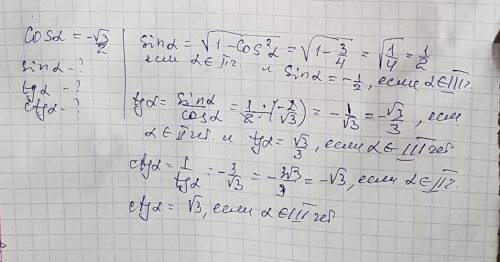 cosα = -√3/2
sinα - ?
tgα - ?
ctgα - ?
sinα = √(1-cos²α) = √(1-3/4) = √(1/4) = 1/2
если α ∈ II г. и sinα = -1/2, если α ∈ III г.
tgα = sinα/cosα = 1/2 · (-2/√3) = -1/√3 = -√3/3, если
α ∈ II чет. и tgα = √3/3, если α ∈ III чет
ctgα = 1/tgα = -3/√3 = -3√3/3 = -√3, если α ∈ II г.
ctgα = √3, если α ∈ III чет